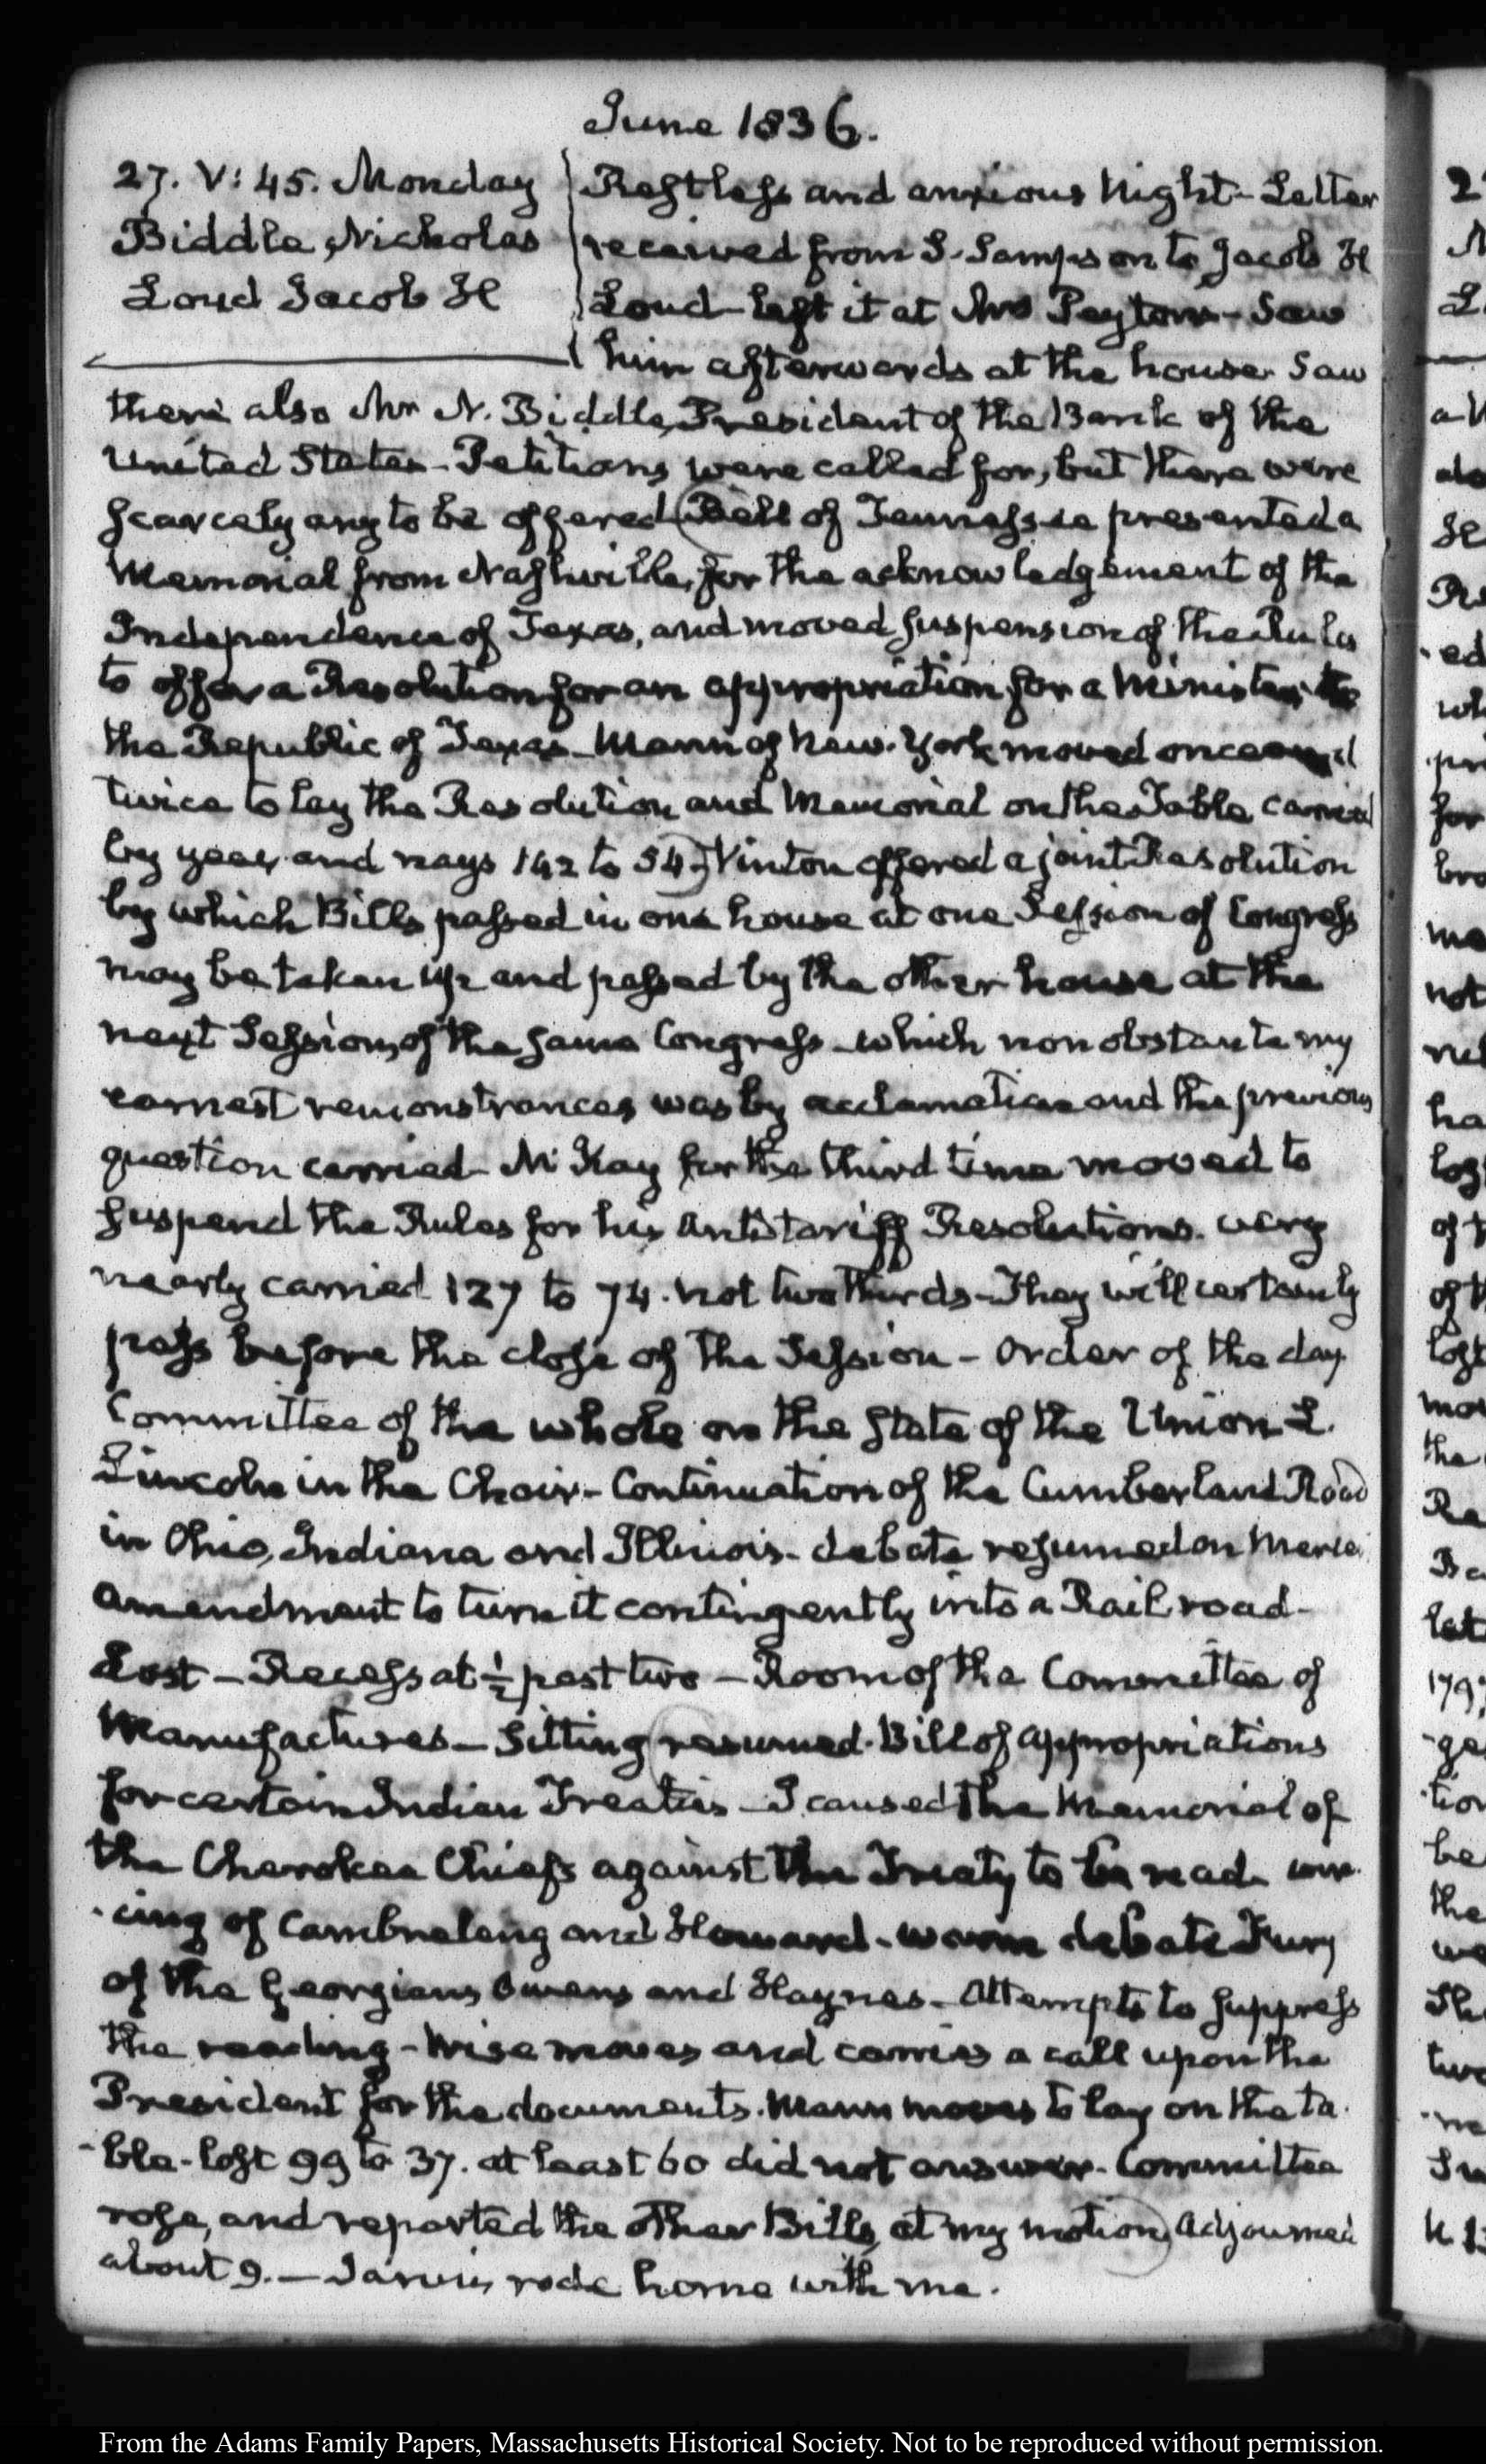 June 1836.
27. V: 45. Monday
Biddle, Nicholas
Loud Jacob H
Restless and anxious Night - Letter
received from S. Sampson to Jacob H
Loud - left it at Mrs Peytons - Saw
him afterwards at the house. Saw
there also Mr N. Biddle, President of the Bank of the
United States - Petitions were called for, but there were
scarcely any to be offered (Bell of Tennessee presented a
Memorial from Nashville, for the acknowledgement of the
Independence of Texas, and moved suspension of the Rules
to offer a Resolution for an appropriation for a Minister to
the Republic of Texas - Mann of New-York moved once and
twice to lay the Resolution and Memorial on the Table, carried
by yeas and nays 142 to 54) Vinton offered a joint Resolution
by which Bills passed in one house at one Session of Congress
may be taken up and passed by the other house at the
next Session, of the same Congress - which non obstante my
earnest remonstrances was by acclamation and the previous
question carried - McKay for the third time moved to
suspend the Rules for his antitariff Resolutions. very
nearly carried 127 to 74. not two thirds - They will certainly
pass before the close of the Session - Order of the day
Committee of the whole on the State of the Union L.
Lincoln in the Chair - Continuation of the Cumberland Road
in Ohio, Indiana and Illinois - debate resumed on
amendment to turn it contingently into a Rail road -
Lost - Recess at ½ past two - Room of the Committee of
Manufactures - Sitting resumed. Bill of appropriations
for certain Indian Treaties - I caused the Memorial of
the Cherokee Chiefs against the Treaty to be read.
-cing of Cambreleng and Howard - warm debate Fury
of the Georgians Owens and Haynes - Attempts to suppress
the reading - Wise moves and carries a call upon the
President for the documents. Mann moves to lay on the ta-
-ble - lost 99 to 37. at least 60 did not answer - Committee
rose, and reported the other Bills, at my motion) adjourned
about 9. - Jarvis rode home with me.
From the Adams Family Papers, Massachusetts Historical Society. Not to be reproduced without permission.